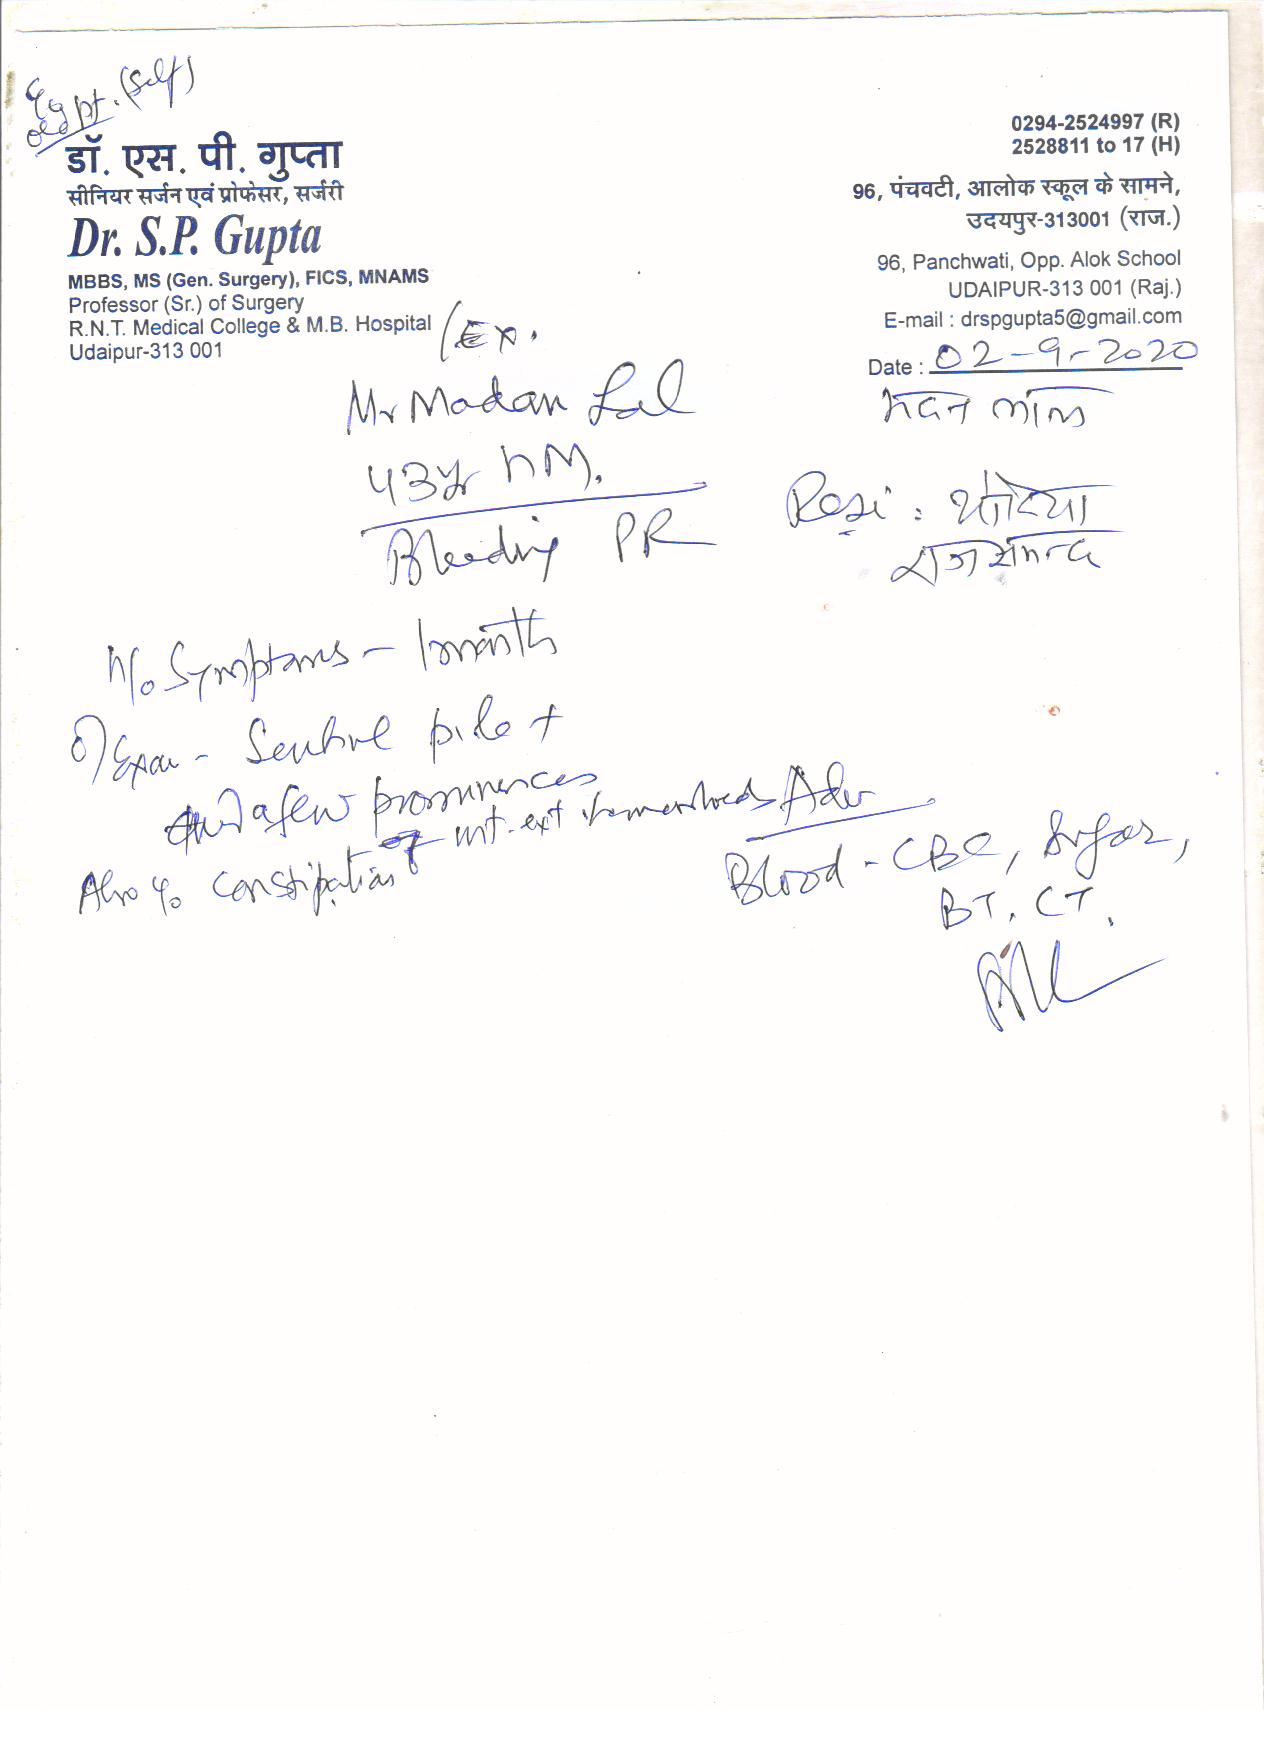 old pt. (Self)
डॉ. एस. पी. गुप्ता
सीनियर सर्जन एवं प्रोफेसर, सर्जरी
Dr. S.P. Gupta
MBBS, MS (Gen. Surgery), FICS, MNAMS
Professor (Sr.) of Surgery
R.N.T. Medical College & M.B. Hospital
Udaipur-313 001
(Ex.
0294-2524997 (R)
2528811 to 17 (H)
96, पंचवटी, आलोक स्कूल के सामने,
उदयपुर-313001 (राज.)
96, Panchwati, Opp. Alok School
UDAIPUR-313 001 (Raj.)
E-mail : drspgupta5@gmail.com
Date : 02-9-2020
Mr Madan Lal
43yr hM.
Bleeding PR
मदन लाल
Resi :
राजसमन्द
H/o Symptoms - 1 month
O/Exam - Sentinel pile +
and a few prominences
of int-ext haemorrhoids
Also c/o Constipation
Adv
Blood - CBC, Sugar,
BT, CT,